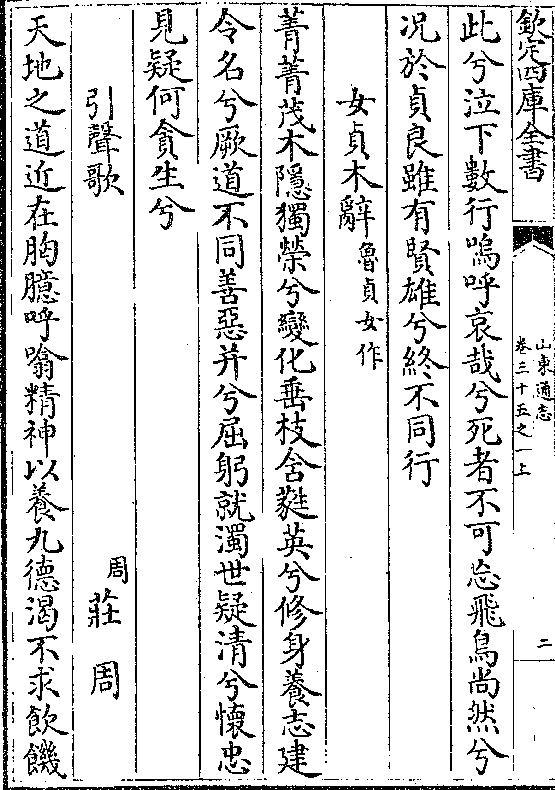 欽定四庫全書
山東通志
卷三十五之一上
二
此兮泣下數行嗚呼哀哉兮死者不可忘飛鳥尚然兮
况於貞良雖有賢雄兮終不同行
女貞木辭魯貞女作
菁菁茂木隱獨榮兮變化垂枝含蕤英兮修身養志建
令名兮厥道不同善惡并兮屈躬就濁世疑清兮懷忠
見疑何貪生兮
引聲歌
周莊周
天地之道近在胸臆呼噏精神以養九德渴不求飲饑